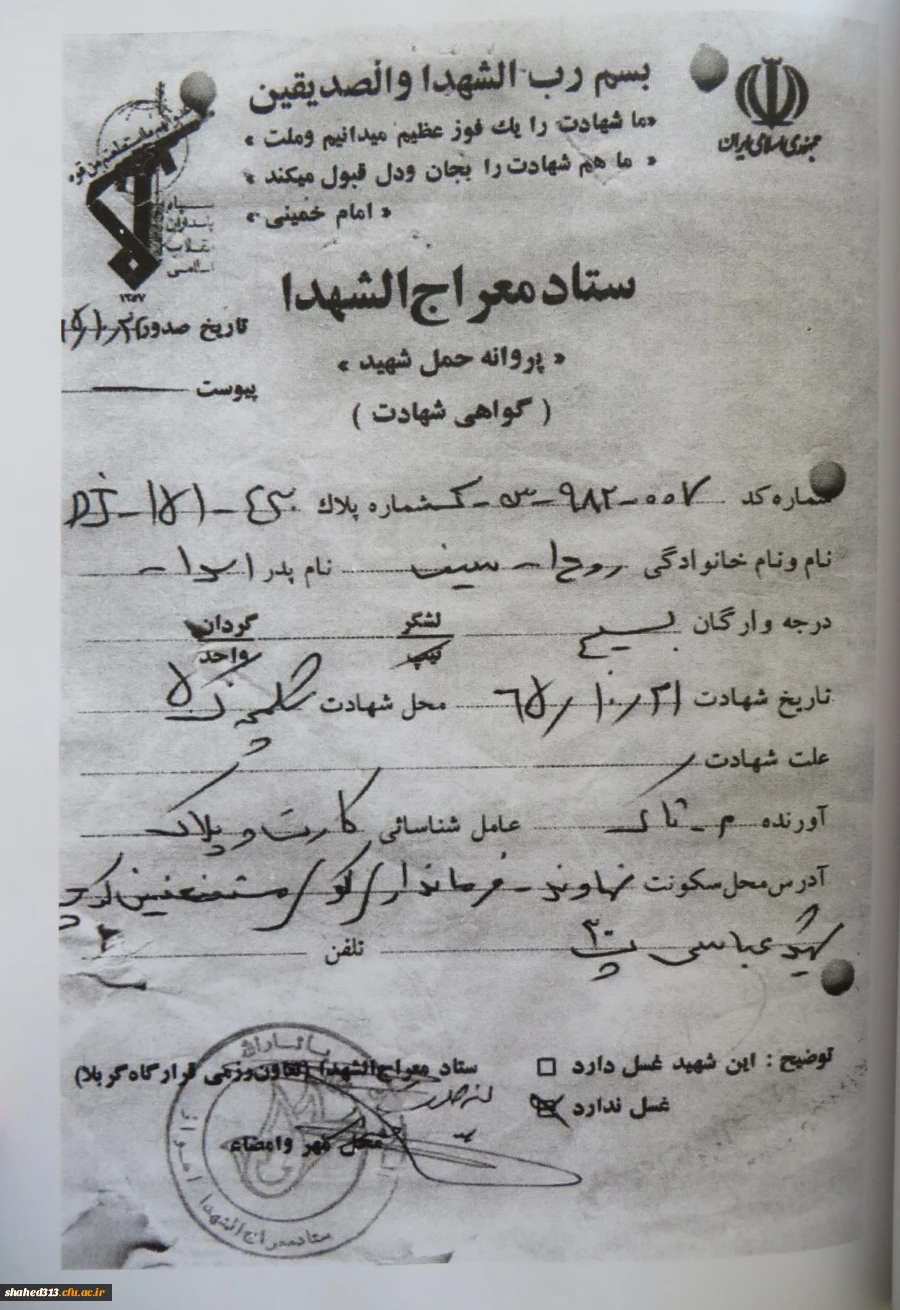 بسم رب الشهدا والصدیقین
«ما شهادت را یك فوز عظیم میدانیم وملت »
« ما هم شهادت را بجان ودل قبول میکند »
« امام خمینی »
جمهوری اسلامی ایران
سپاه
پاسداران
انقلاب
اسلامی
۱۳۵۷
ستاد معراج الشهدا
تاریخ صدور
« پروانه حمل شهید »
پیوست
( گواهی شهادت )
شماره کد ۰۰۷-۹۸۲- شماره پلاك DJ-۱۵۱-
نام ونام خانوادگی روح ا- سیف نام پدر
درجه وارگان بسیج لشگر گردان
تیپ واحد
تاریخ شهادت ۶۵/۱۰/۲۱ محل شهادت شلمچه
علت شهادت
آورنده م- عامل شناسائی کارت و پلاک
آدرس محل سکونت نهاوند - فرمانداری کوی مستضعفین
شهید عباسی پ ۳۰ تلفن
توضیح : این شهید غسل دارد
غسل ندارد
ستاد معراج الشهدا (تعاون رزمی قرارگاه کربلا)
محل مهر وامضاء
یا ثارالله
ستاد معراج الشهدا اهواز
shahed313.cfu.ac.ir